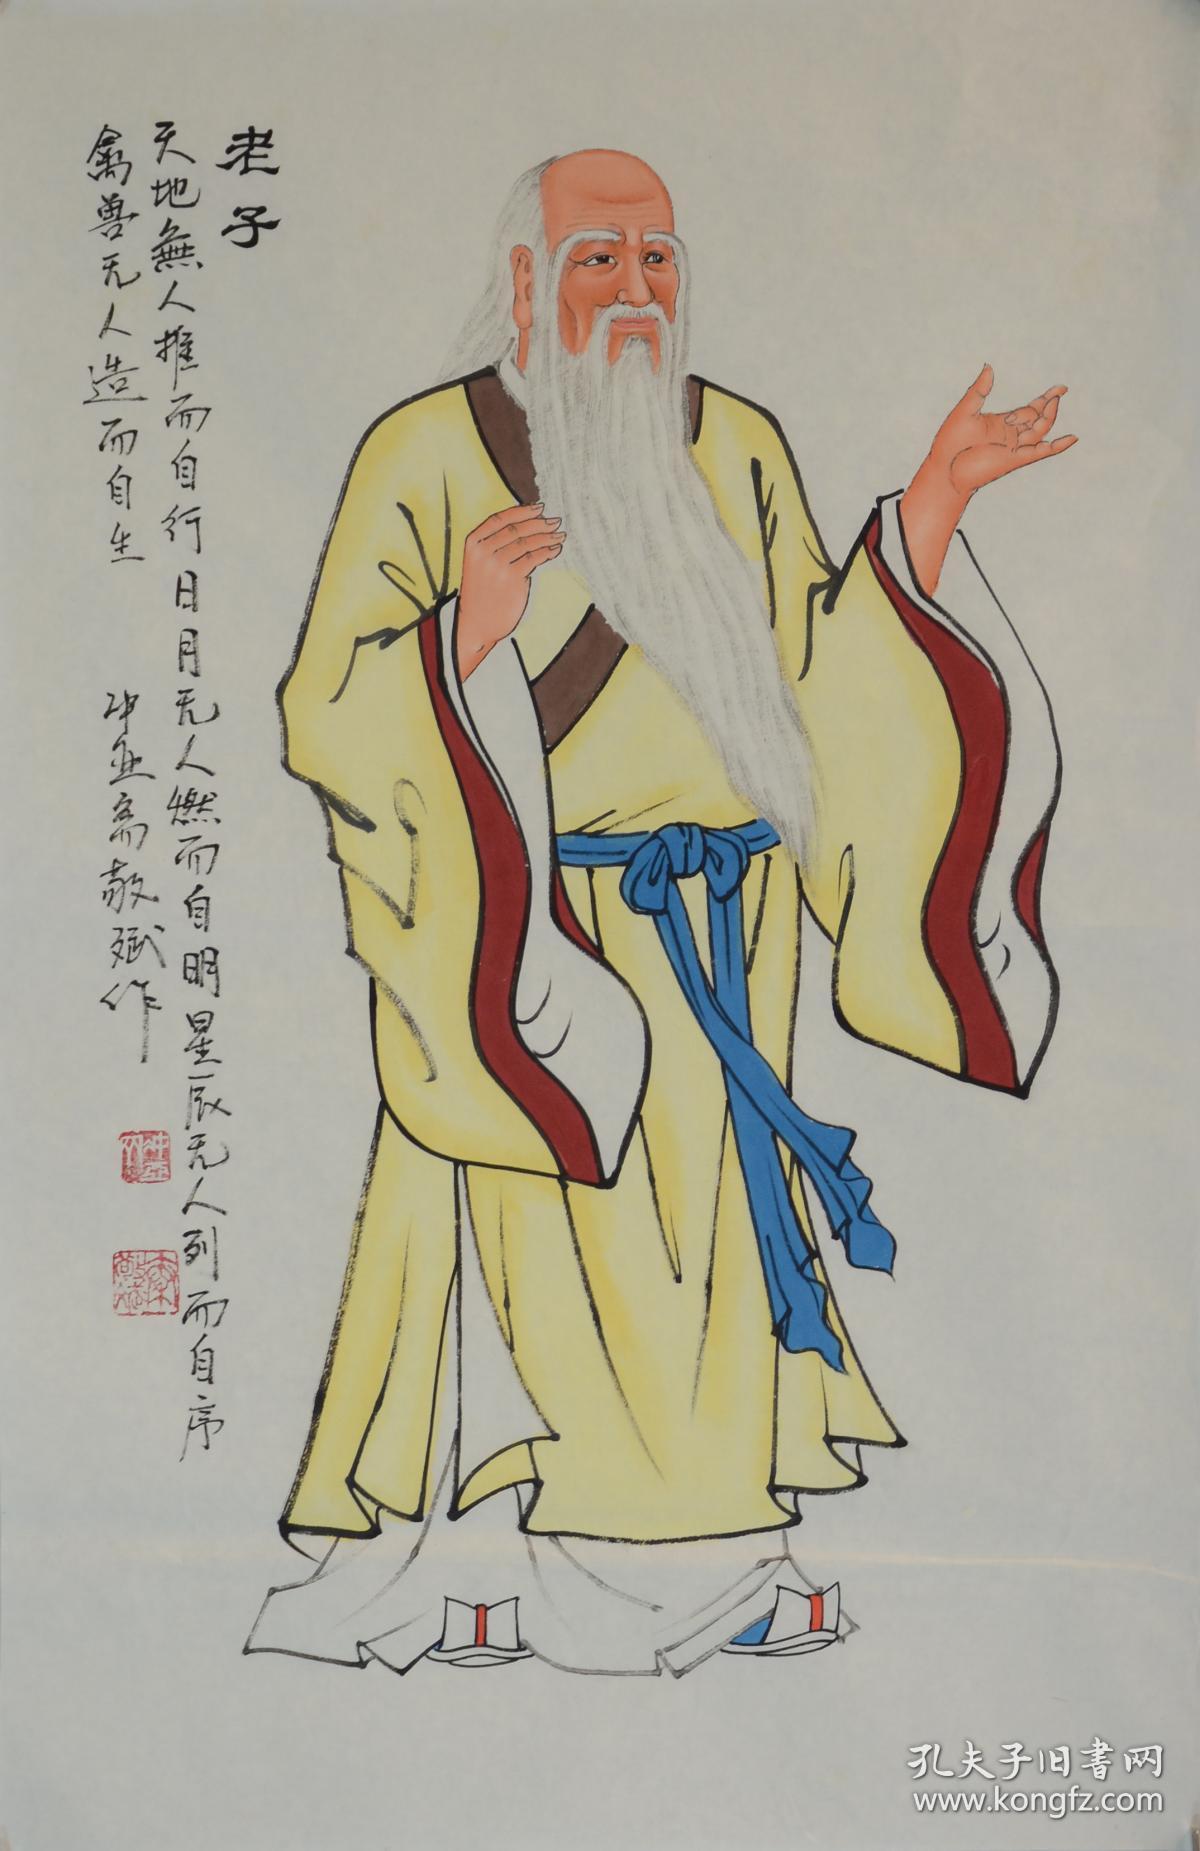 老子
天地無人推而自行日月无人燃而自明星辰无人列而自序
禽兽无人造而自生
冲亚斋敬斌作
孔夫子旧書网
www.kongfz.com